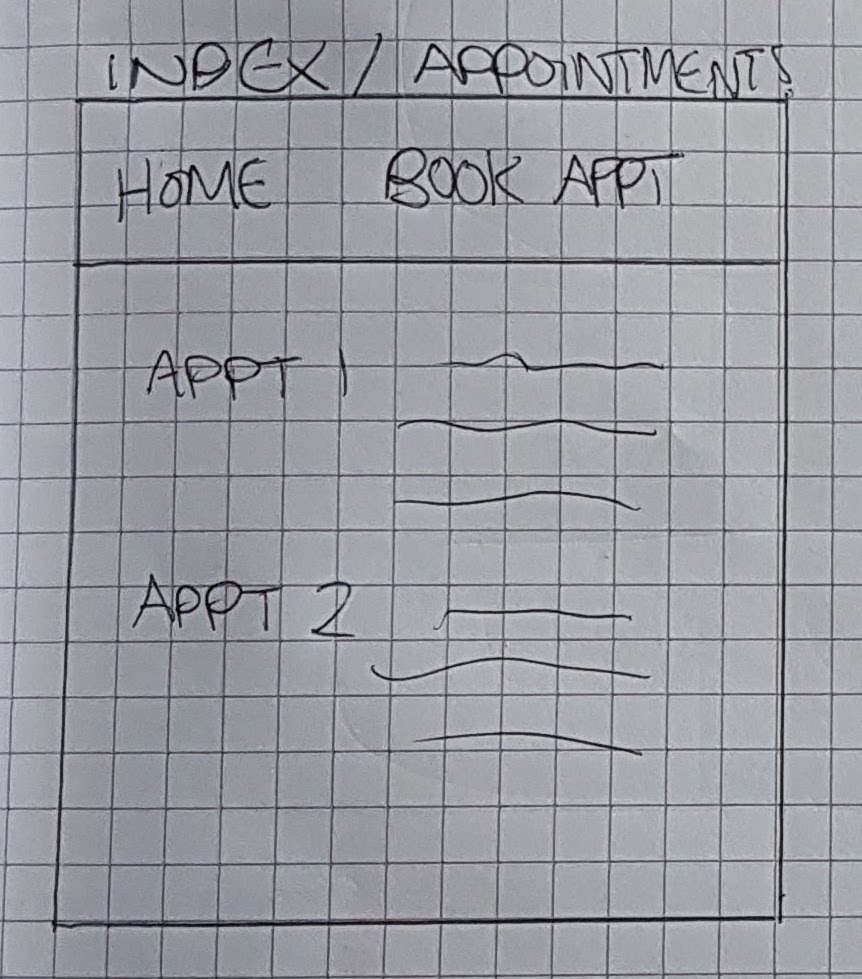 INDEX / APPOINTMENTS
HOME BOOK APPT
APPT 1
APPT 2